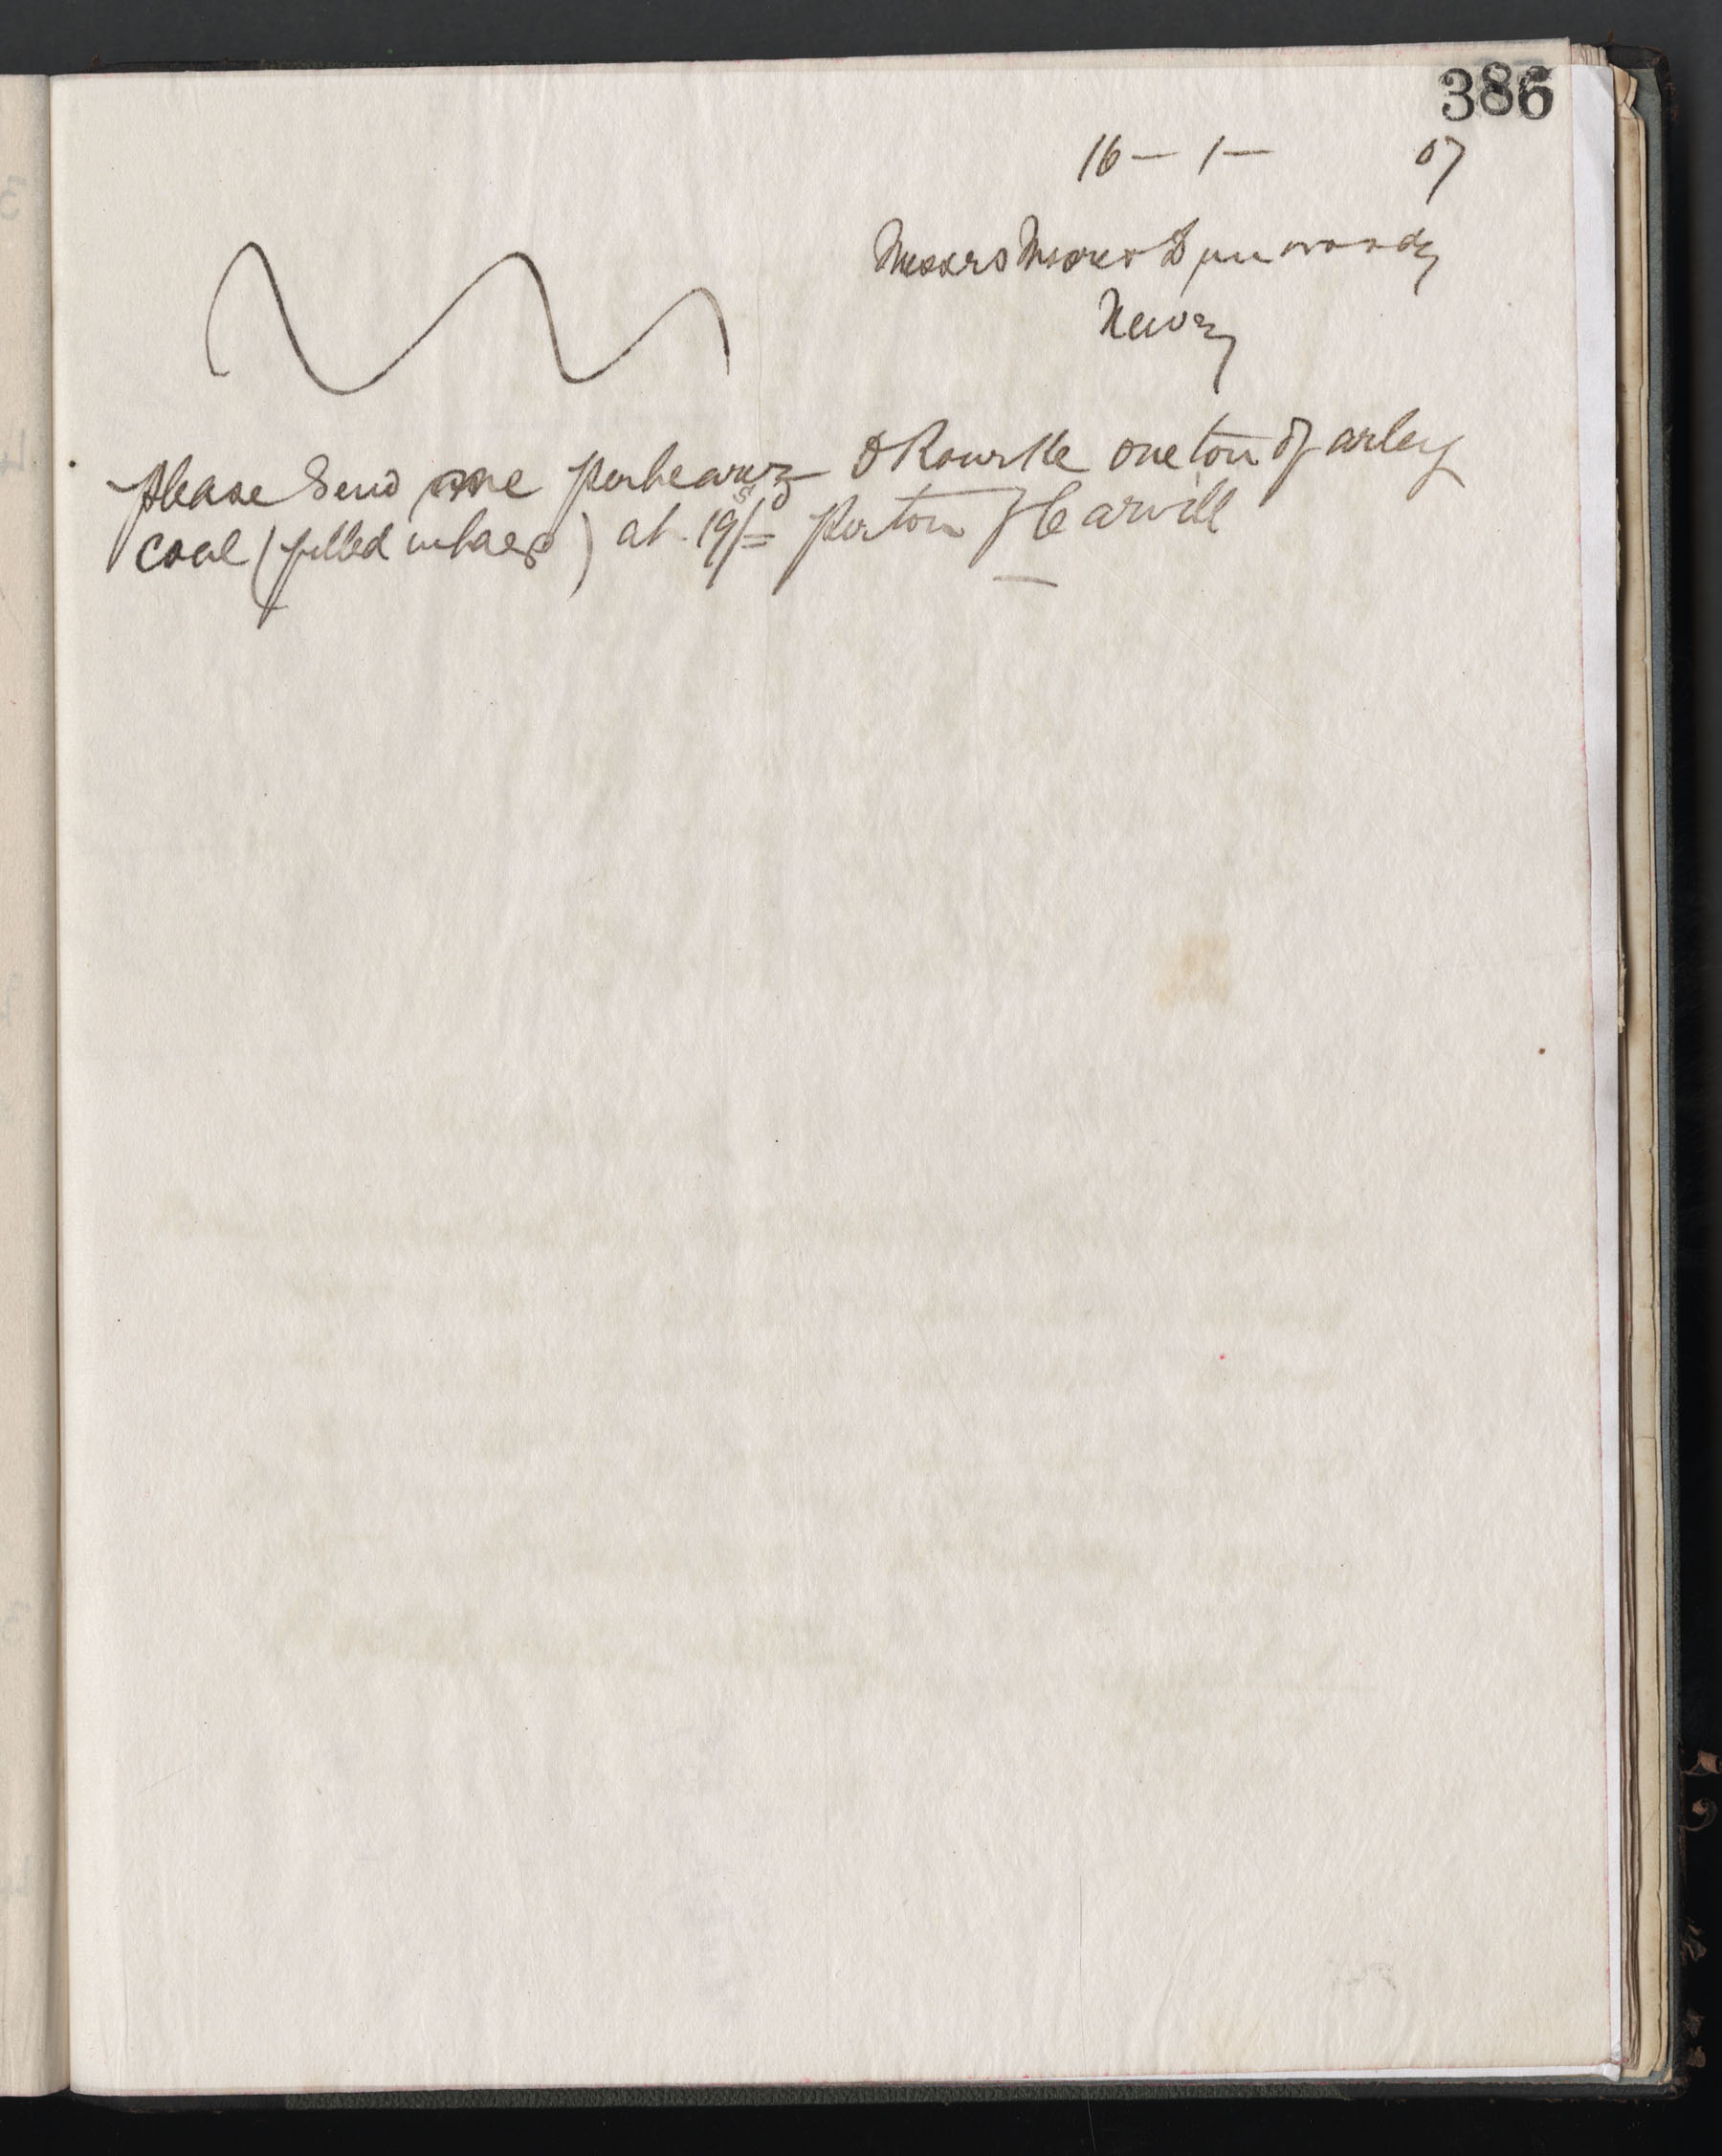 386
16 - 1 - 07
Messrs Moore & Dunwoody
Newry
Please Send me per bearer O Rourke one ton of arley
coal (filled in bags) at 19/= per ton F Carvill